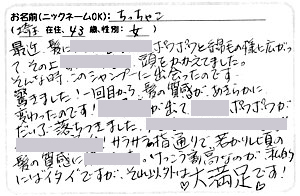 お名前(ニックネームOK): ちっちゃこ
(埼玉 在住、43 歳、性別: 女 )
最近、髪に ポワポワと綿毛の様に広がっ
て、その上 頭をかかえてました。
そんな時、このシャンプーに出会ったのです。
驚きました!一回目から、髪の質感があきらかに
変わったのです! が出て、 ポワポワが
だいぶ落ちつきました。
サラサラな指通りで、若かりし頃の
髪の質感に 。けっこう高額なのが、私から
にはイタイですが、それ以外は大満足です♡